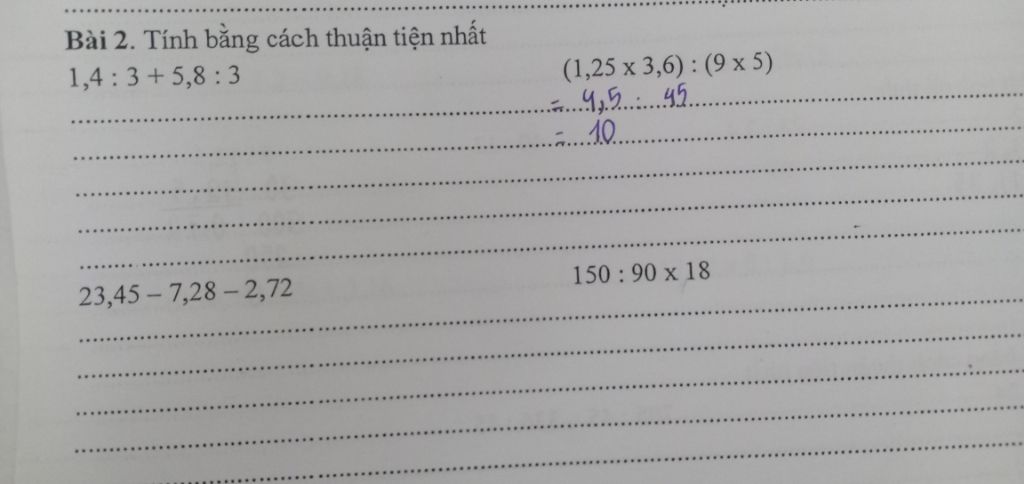 Bài 2. Tính bằng cách thuận tiện nhất
1,4 : 3 + 5,8 : 3
(1,25 x 3,6) : (9 x 5)
= 4,5 : 45
= 10
23,45 – 7,28 – 2,72
150 : 90 x 18